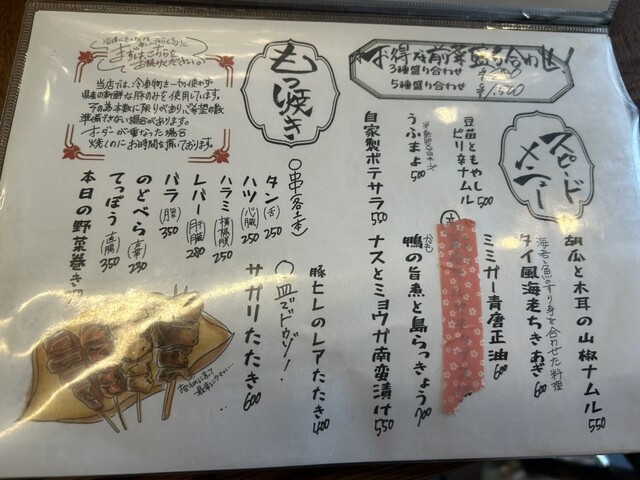 お得な前菜盛り合わせ
3種盛り合わせ
5種盛り合わせ ¥1,500
スピードメニュー
胡瓜と木耳の山椒ナムル 550
タイ風海老ちきあぎ 600
海老と魚のすり身を合わせた料理
ミミガー青唐正油 600
豆苗ともやし
ピリ辛ナムル 500
うふまよ 500
鴨の旨煮と島らっきょう 700
自家製ポテサラ 550
ナスとミョウガ南蛮漬け 550
もつ焼き
まずはこちらで
お読みください。
当店では、冷凍物を一切使わず
国産の新鮮な豚のみを使用しています。
その為本数に限りがあり、ご希望の数
準備できない場合があります。
オーダーが重なった場合
焼くのにお時間を頂いております。
○串(各1本)
タン(舌) 250
ハツ(心臓) 250
ハラミ(横隔膜) 250
レバー(肝臓) 280
バラ 350
のどべら 230
てっぽう(直腸) 350
本日の野菜巻き
○皿でドウゾ!
豚ヒレのレアたたき 400
サガリたたき 600